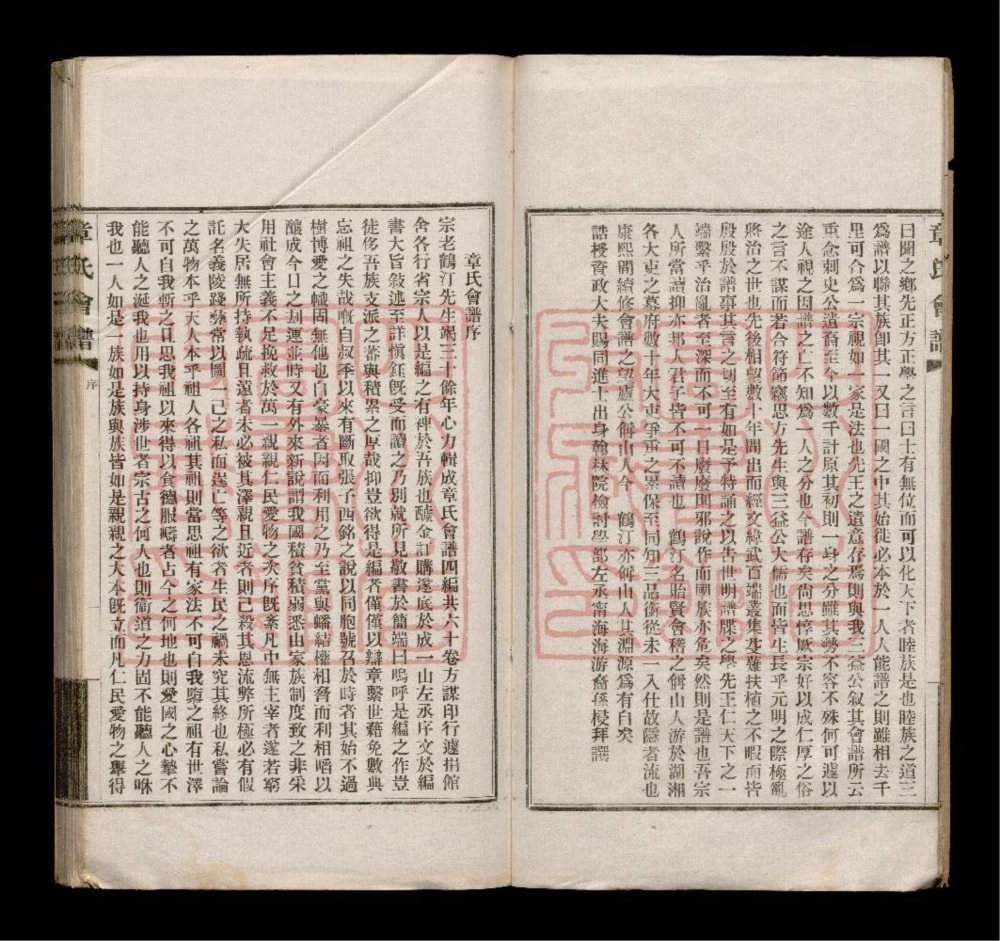 曰聞之鄉先正方正學之言曰士有無位而可以化天下者睦族是也睦族之道三
爲譜以聯其族卽其一又曰一國之中其始徒必本於一人人能譜之則雖相去千
里可合爲一宗視如一家是法也先王之遺意存焉則與我三益公叙其會譜所云
重念刺史公遺裔至今以數千計原其初則一身之分雖其勢不容不殊何可遽以
途人視之因譜之亡不知爲一人之分也今譜存矣尚思惇厥宗好以成仁厚之俗
之言不謀而若合符節竊思方先生與三益公大儒也而皆生長乎元明之際極亂
將治之世也先後相望數十年間出而經文緯武百端叢集芟薙扶植之不暇而皆
殷殷於譜事其言之切至有如是予特誦之以告世明譜牒之學先王仁天下之一
端繫乎治亂者至深而不可一日廢廢則邪說作而國族亦危矣然則是譜也吾宗
人所當讀抑亦邦人君子皆不可不讀也 鶴汀名貽賢會稽之偁山人游於湖湘
各大吏之幕府數十年大吏爭重之累保至同知三品銜從未一入仕故隱者流也
康熙間續修會譜之望廬公偁山人今 鶴汀亦偁山人其淵源爲有自矣
誥授資政大夫賜同進士出身翰林院檢討學部左丞甯海海游裔孫梫拜譔
章氏會譜
序
章氏會譜序
宗老鶴汀先生竭三十餘年心力輯成章氏會譜四編共六十卷方謀印行遽捐館
舍各行省宗人以是編之有裨於吾族也醵金訂購遂底於成一山左丞序文於編
書大旨敘述至詳愼鈺旣受而讀之乃別就所見敬書於簡端曰嗚呼是編之作豈
徒侈吾族支派之蕃與積累之厚哉抑豈欲得是編者僅僅以辯章繫世藉免數典
忘祖之失哉嘅自叔季以來有斷取張子西銘之說以同胞號召於時者其始不過
樹博愛之幟固無他也自豪暴者因而利用之乃至黨與蟠結權相脅而利相啗以
釀成今日之刦運並時又有外來新說謂我國積貧積弱悉由家族制度致之非采
用社會主義不足挽救於萬一親親仁民愛物之次序旣紊凡中無主宰者遂若窮
大失居無所持執疏且遠者未必被其澤親且近者則已殺其恩流弊所極必有假
託名義陵踐彝常以圖一己之私而逞亡等之欲者生民之禍未究其終也私嘗論
之萬物本乎天人本乎祖人各祖其祖則當思祖有家法不可自我隳之祖有世澤
不可自我斬之且思我祖以來得以食德服疇者占今之何地也則愛國之心摯不
能聽人之涎我也用以持身涉世者宗古之何人也則衞道之力固不能聽人之咻
我也一人如是一族如是族與族皆如是親親之大本旣立而凡仁民愛物之舉得
章氏會譜